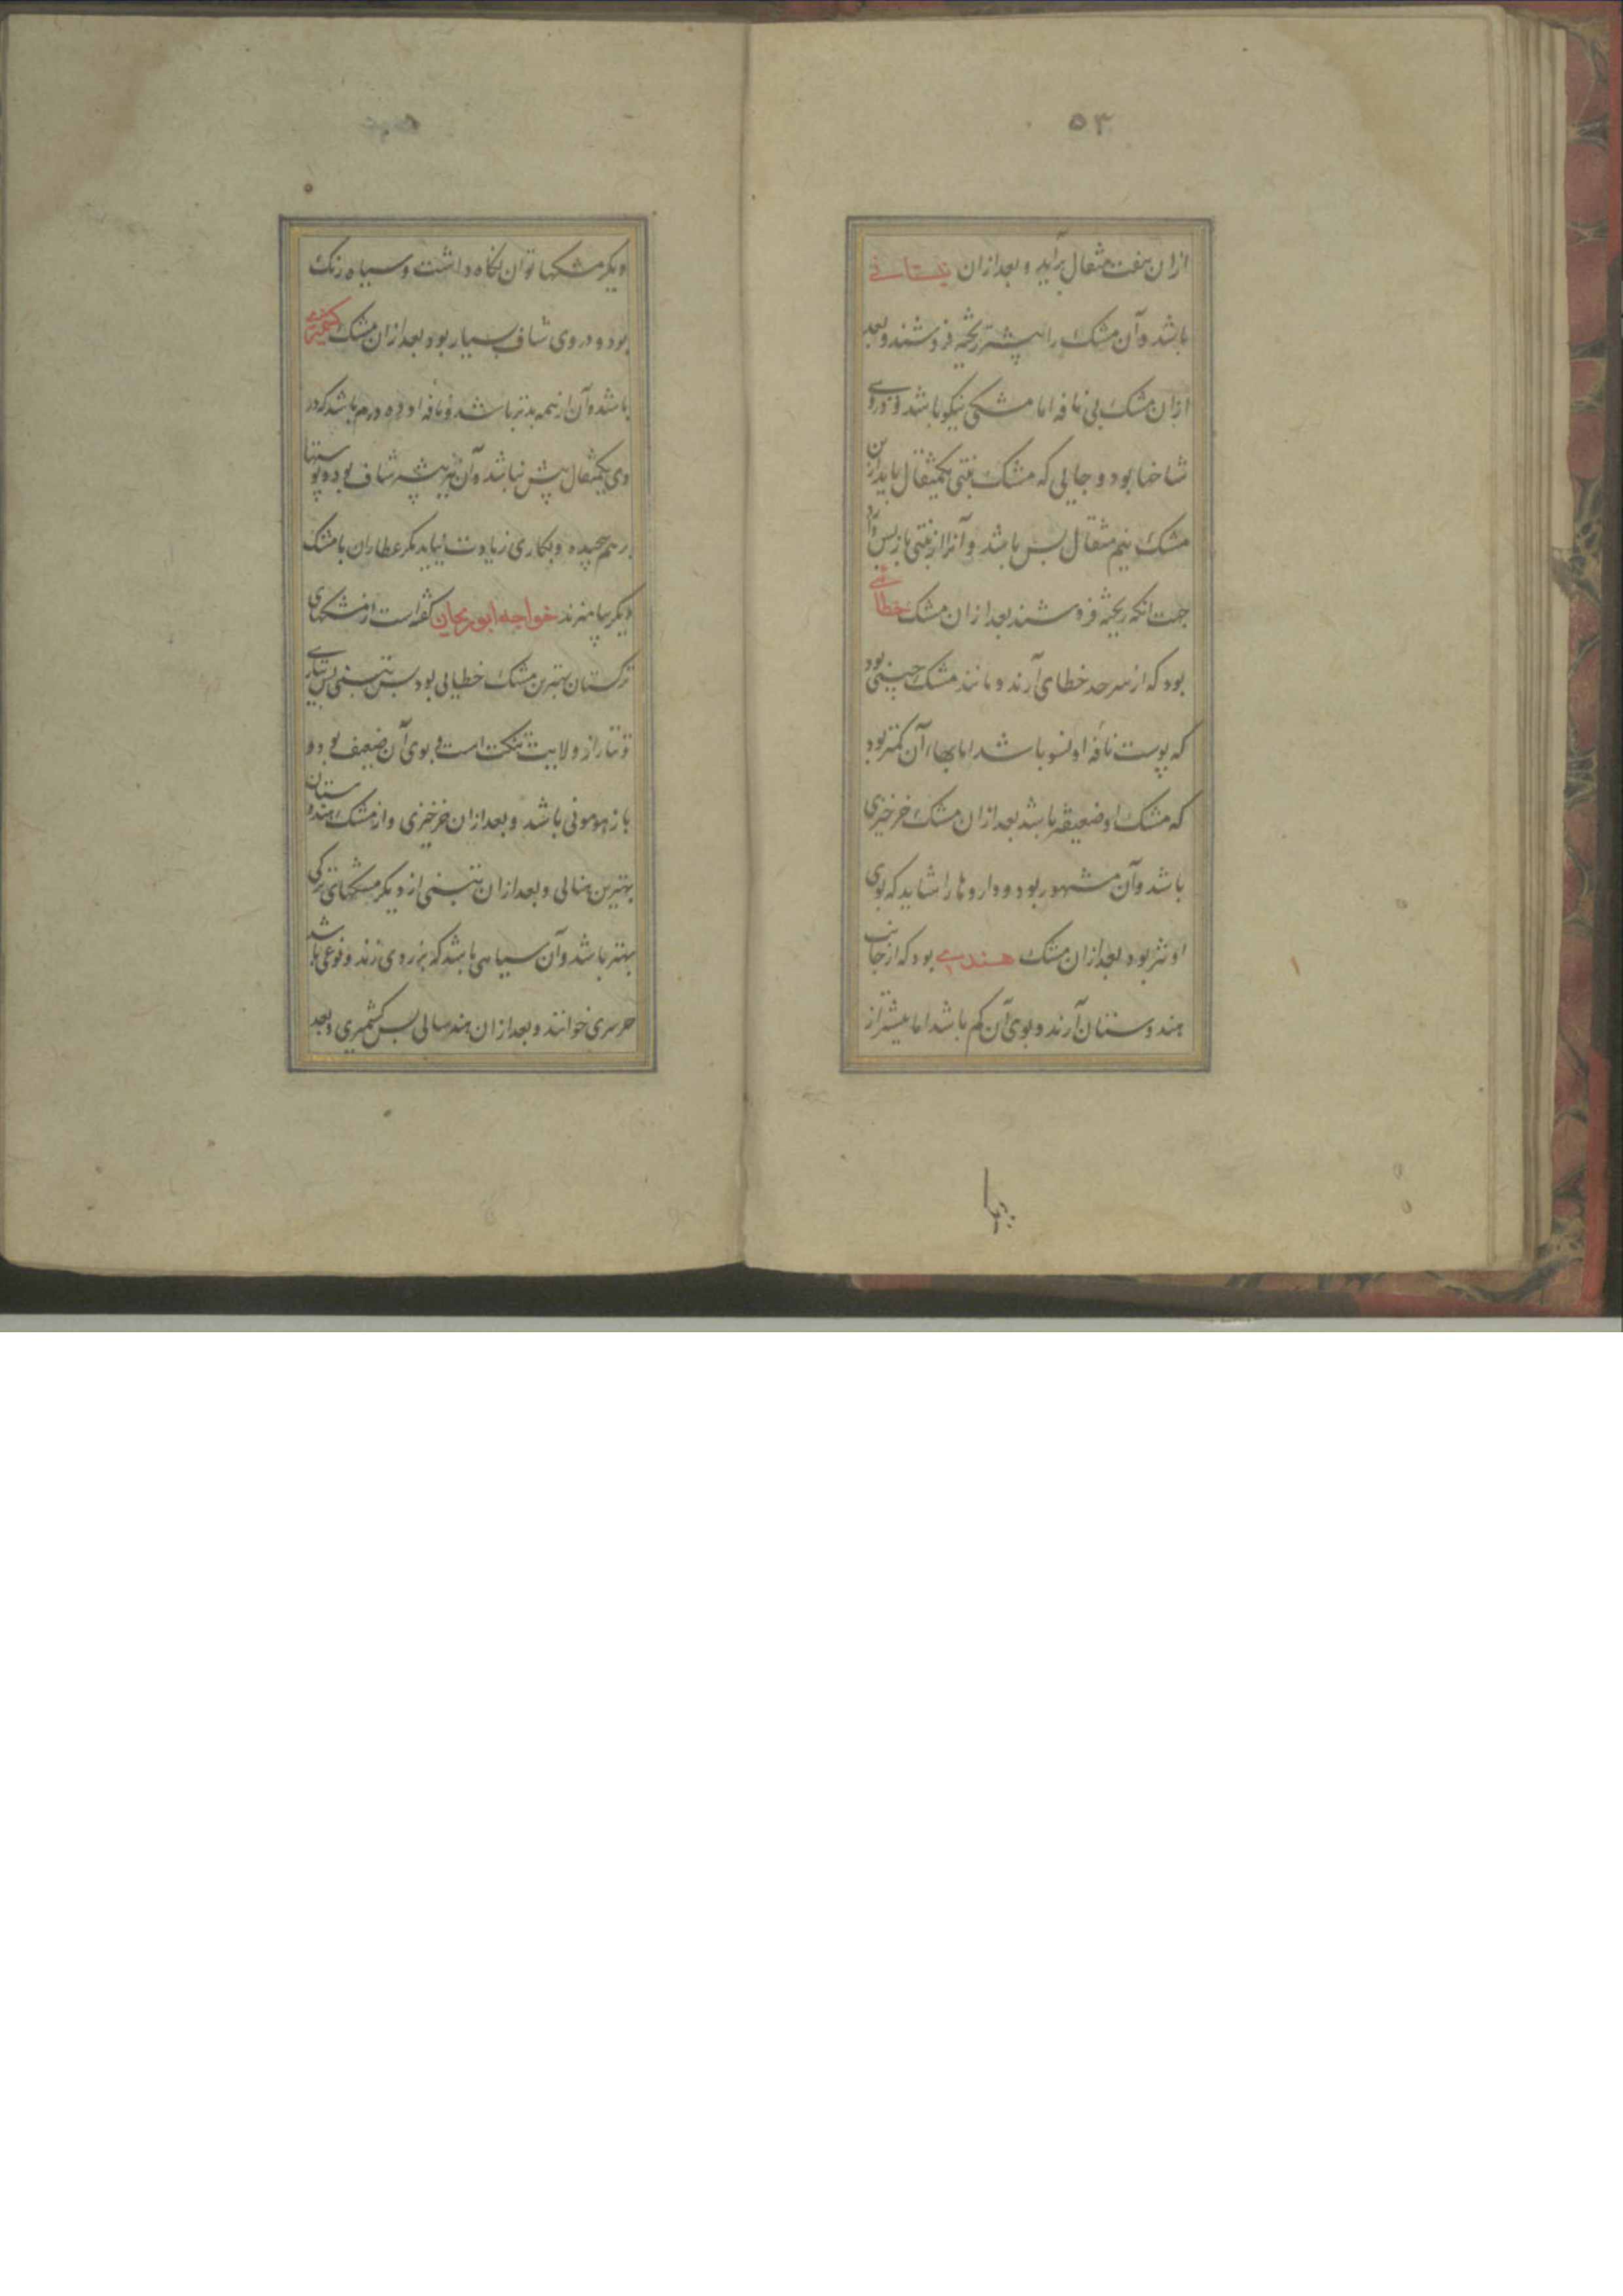 ۵۳
ازان هفت مثقال برآید و بعد ازان نیستانی
باشد وآن مشک را بیشتر ریخته فروشند و بعد
ازان مشک بی نافه اما مشکی نیکو باشد و در وی
شاخها بود و جایی که مشک تبتی یکمثقال باید ازین
مشک نیم مثقال بس باشد و آنرا از تبتی باز پس
جهت انکه ریخته فروشند بعد ازان مشک خطائی
بود که از سرحد خطای آرند و مانند مشک چینی بود
که پوست نافه او باشد اما بهاء آن کمتر بود
که مشک او ضعیفتر باشد بعد ازان مشک خرخیزی
باشد وآن مشهور بود و داروها را شاید که بوی
او تیز بود بعد ازان مشک هندی بود که از جانب
هندوستان آرند و بوی آن کم باشد اما بیشتر از
دیکر مشکها توان نکاه داشت و سیاه رنک
بود و در وی شاف بسیار بود بعد ازان مشک کشمیری
باشد وآن از همه بدتر باشد و نافه او ده درم باشد که در
وی یکمثقال بیش نباشد وآن نیز بیشتر شاف بود و پوستها
بر هم پیچیده و بکاری زیادت نیاید مکر عطاران با مشک
دیکر بیامیزند خواجه ابو ریحان کفته است از مشکهای
ترکستان بهترین مشک خطایی بود پس تبتی پس تتاری
و تتار از ولایت است و بوی آن ضعیف بود و
باشد و بعد ازان خرخیزی و از مشک هندوستان
بهترین و بعد ازان تبتی از دیکر مشکهای ترکی
بهتر باشد وآن سیاهی باشد که بزردی زند و نوعی باشد
خوانند و بعد ازان پس کشمیری و بعد